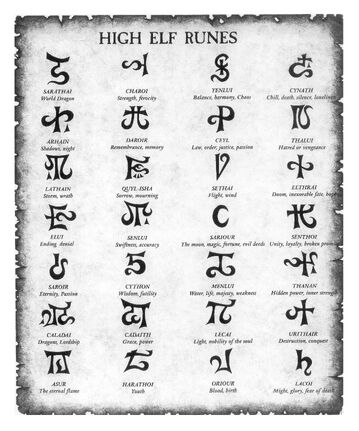 HIGH ELF RUNES
SARATHAI CHAROI YENLUI CYNATH
World Dragon Strength, ferocity Balance, harmony, Chaos Chill, death, silence, loneliness
ARHAIN DAROIR CEYL THALUI
Shadows, night Remembrance, memory Law, order, justice, passion Hatred or vengeance
LATHAIN QUYL-ISHA SETHAI ELTHRAI
Storm, wrath Sorrow, mourning Flight, wind Doom, inexorable fate,
ELUI SENLUI SARIOUR SENTHOI
Ending, denial Swiftness, accuracy The moon, magic, fortune, evil deeds Unity, loyalty, broken
SAROIR CYTHON MENLUI THANAN
Eternity, Passion Wisdom, futility Water, life, majesty, weakness Hidden power, inner strength
CALADAI CADAITH LECAI URITHAIR
Dragons, Lordship Grace, power Light, nobility of the soul Destruction, conquest
ASUR HARATHOI ORIOUR LACOI
The eternal flame Youth Blood, birth Might, glory, fear of death